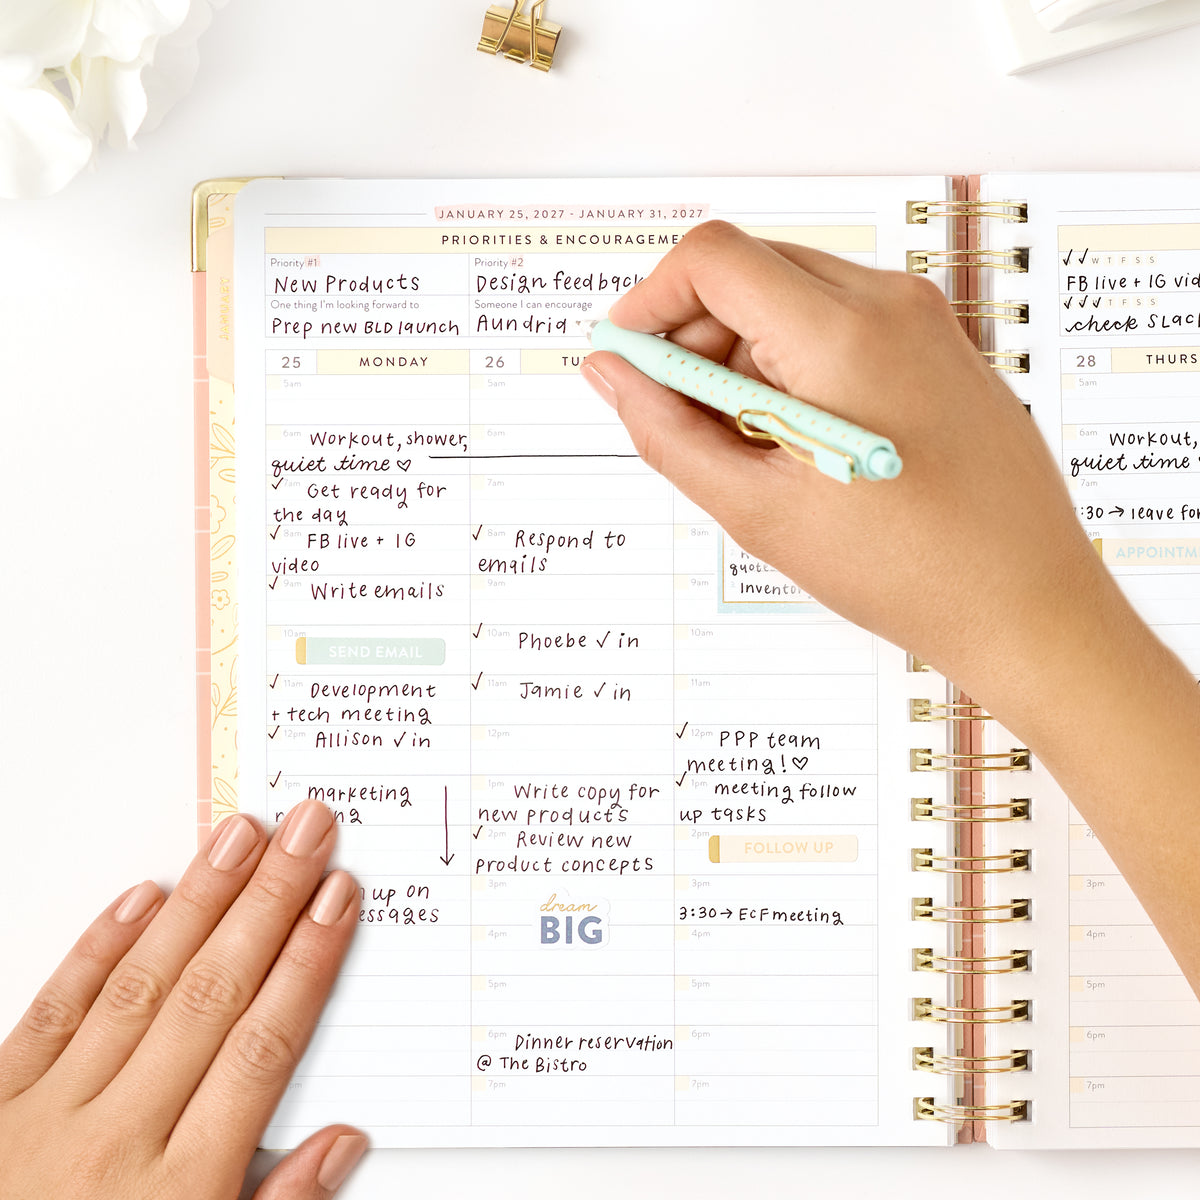 JANUARY 25, 2027 - JANUARY 31, 2027
PRIORITIES & ENCOURAGEME
Priority #1
New Products
One thing I'm looking forward to
Prep new BLD launch
Priority #2
Design feedback
Someone I can encourage
Aundria
25 MONDAY
5am
6am Workout, shower,
quiet time ♡
✓ 7am Get ready for
the day
✓ 8am FB live + IG
video
✓ 9am Write emails
10am
SEND EMAIL
✓ 11am Development
+ tech meeting
✓ 12pm Allison ✓ in
✓ 1pm marketing
up on
26 TU
5am
6am
7am
✓ 8am Respond to
emails
9am
✓ 10am Phoebe ✓ in
✓ 11am Jamie ✓ in
12pm
1pm Write copy for
new products
✓ 2pm Review new
product concepts
3pm
dream
BIG
4pm
5pm
6pm Dinner reservation
@ The Bistro
7pm
8am
9am
Inventory
10am
11am
✓ 12pm PPP team
meeting! ♡
✓ 1pm meeting follow
up tasks
2pm
FOLLOW UP
3pm
3:30 → ECF meeting
4pm
5pm
6pm
7pm
✓ ✓ W T F S S
FB live + IG
✓ ✓ ✓ T F S S
check
28 THURS
5am
6am Workout,
quiet time
7am
:30 → leave for
APPOINTM
6pm
7pm